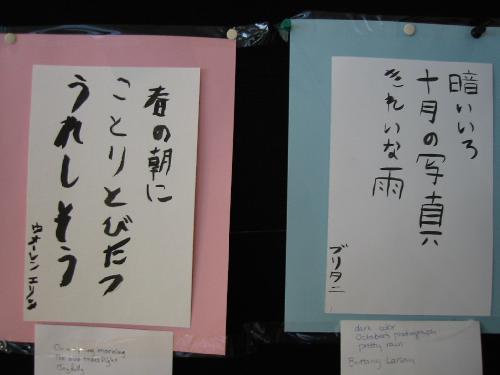 春の朝に
ことりとびたつ
うれしそう
ウオーレン エリン
On a spring morning
暗いいろ
十月の写真
きれいな雨
ブリタニ
dark color
October's photograph
pretty rain
Brittany Larson